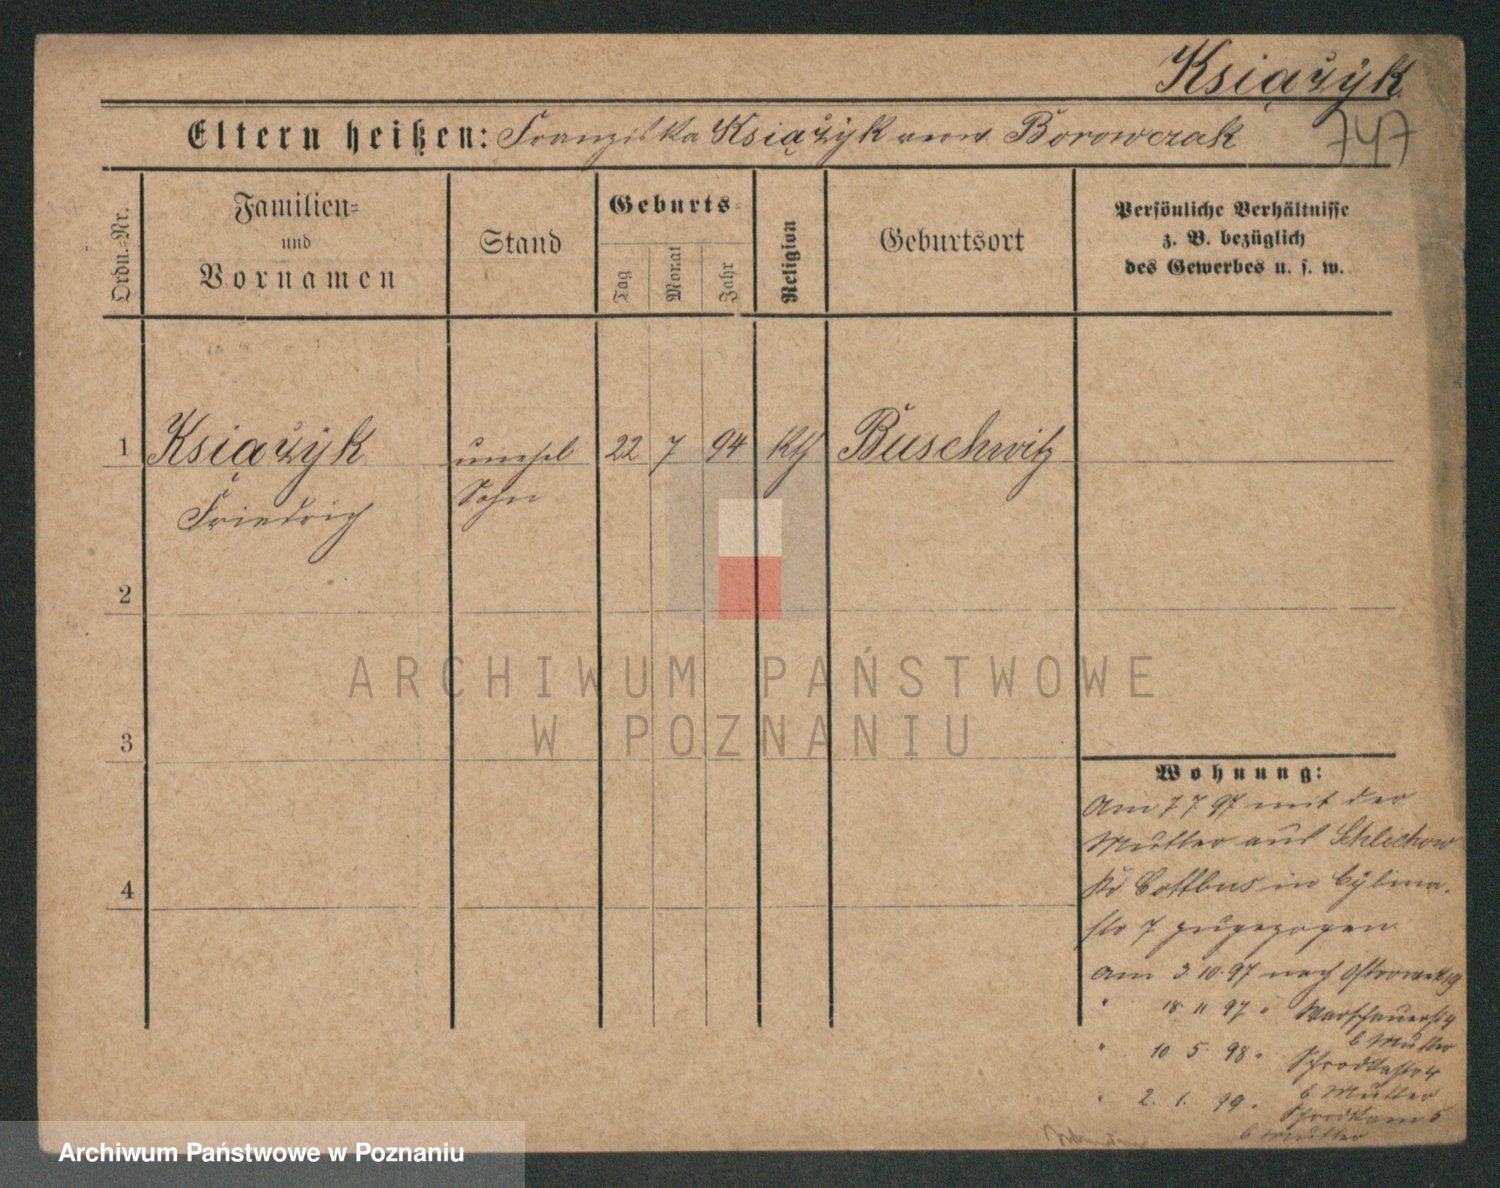 Książyk
747
Eltern heißen: Franziska Książyk verw Borowczak
Ordn.-Nr.
Familien-
und
Vornamen
Stand
Geburts-
Tag
Monat
Jahr
Religion
Geburtsort
Persönliche Verhältnisse
z. B. bezüglich
des Gewerbes u. s. w.
1 Książyk unehel 22 7 94 kth Buschwitz
Friedrich Sohn
2
3
4
Wohnung:
Am 7 7 97 mit der
Mutter aus Schlichow
Kr Cottbus in
str 7 zugezogen
am 3.10.97 nach Ostrowek 19
" 18 11 97 " Warschauerstr 4
b Mutter
" 10 5 98 "
b Mutter
" 2. 1. 99 "
b Mutter
ARCHIWUM PAŃSTWOWE
W POZNANIU
Archiwum Państwowe w Poznaniu